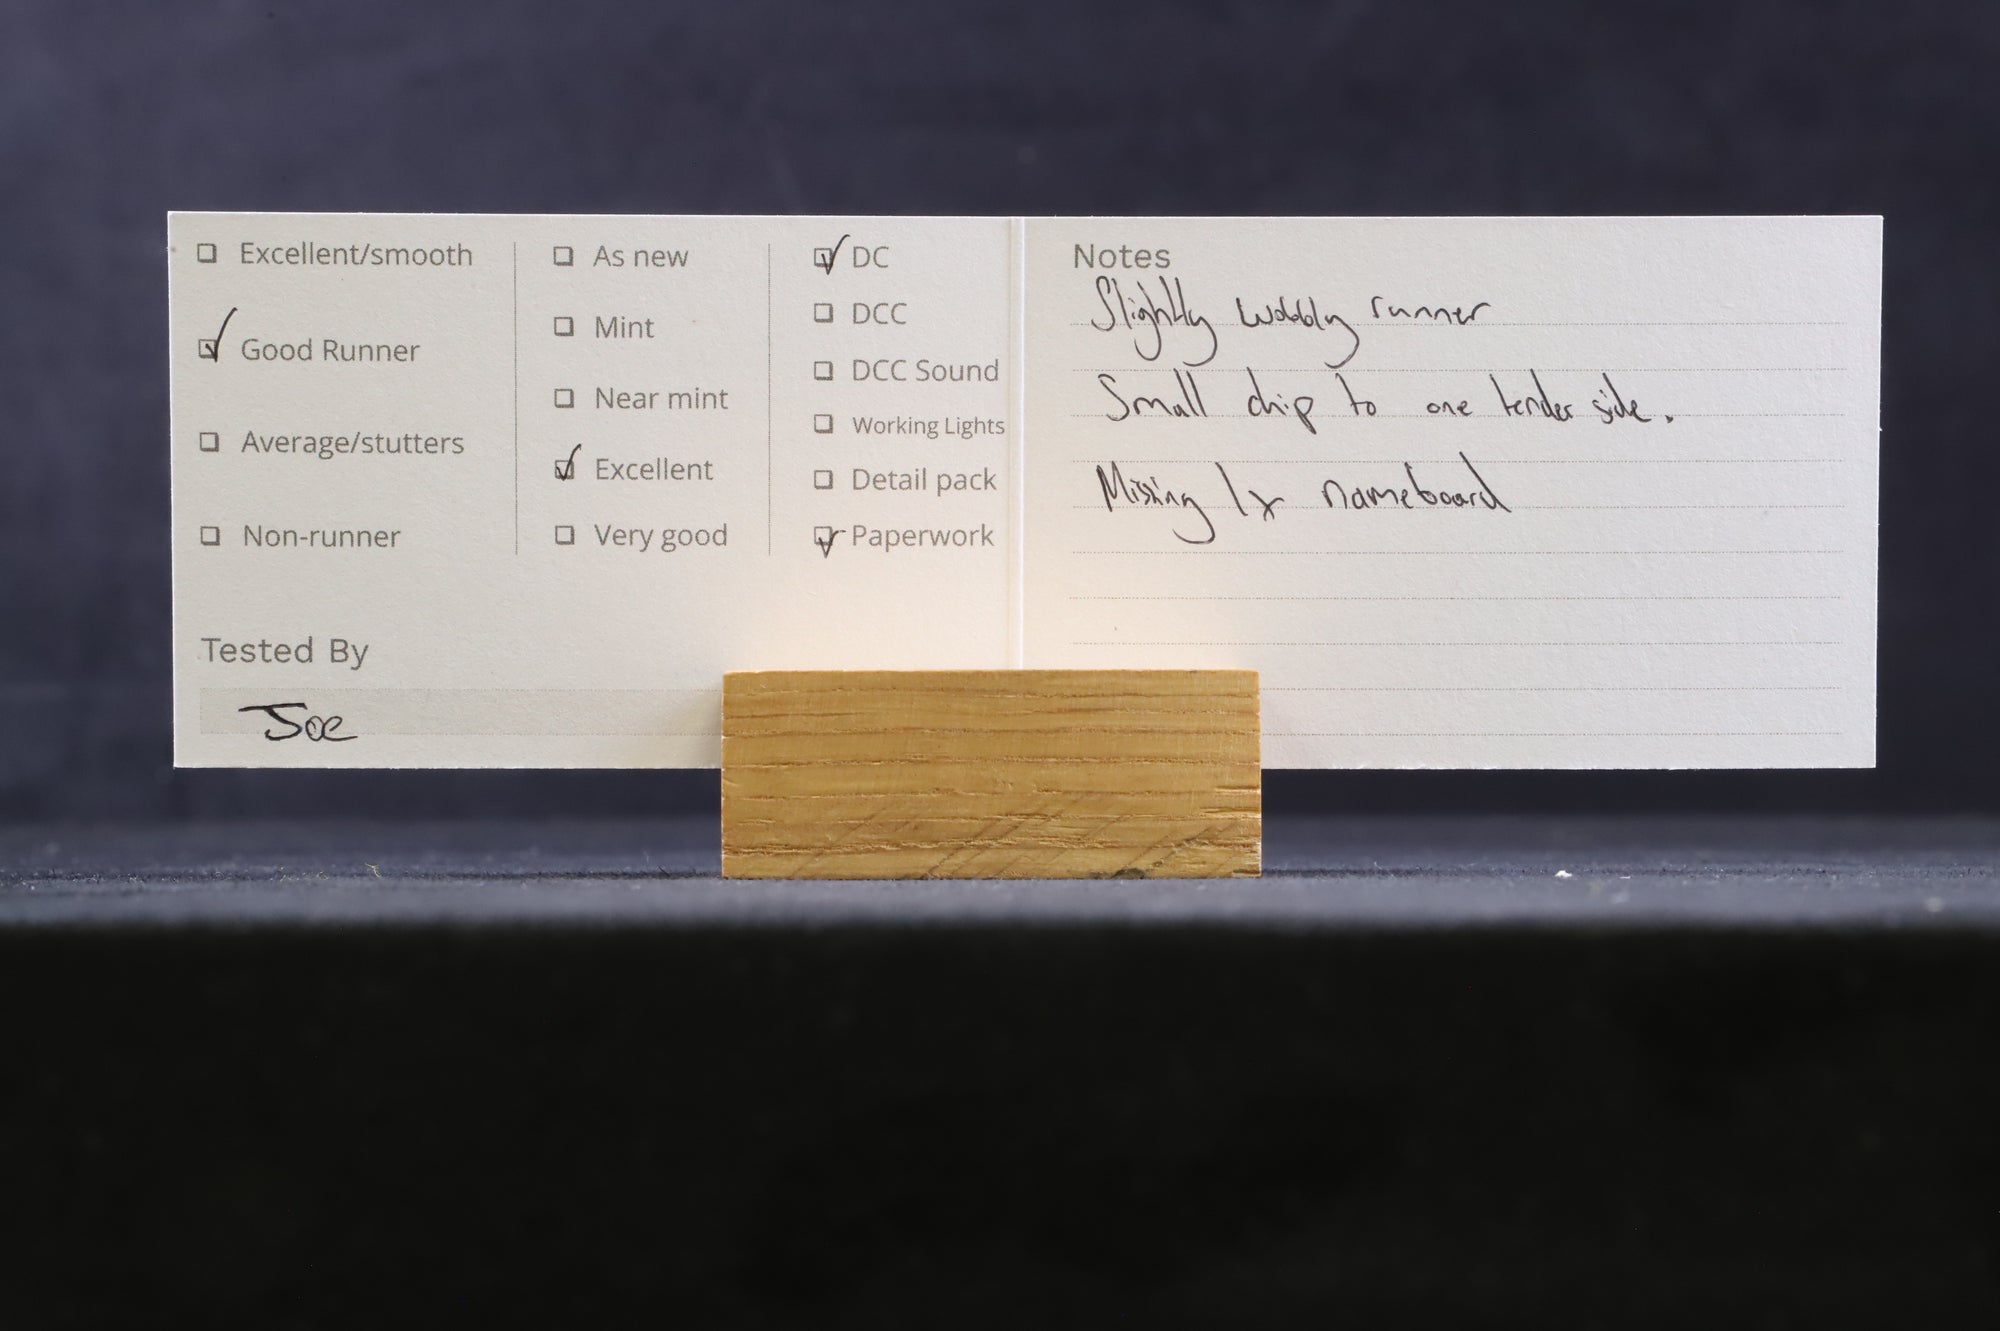 Excellent/smooth
Good Runner
Average/stutters
Non-runner
As new
Mint
Near mint
Excellent
Very good
DC
DCC
DCC Sound
Working Lights
Detail pack
Paperwork
Tested By
Joe
Notes
Slightly wobbly runner
Small chip to one tender side.
Missing 1x nameboard